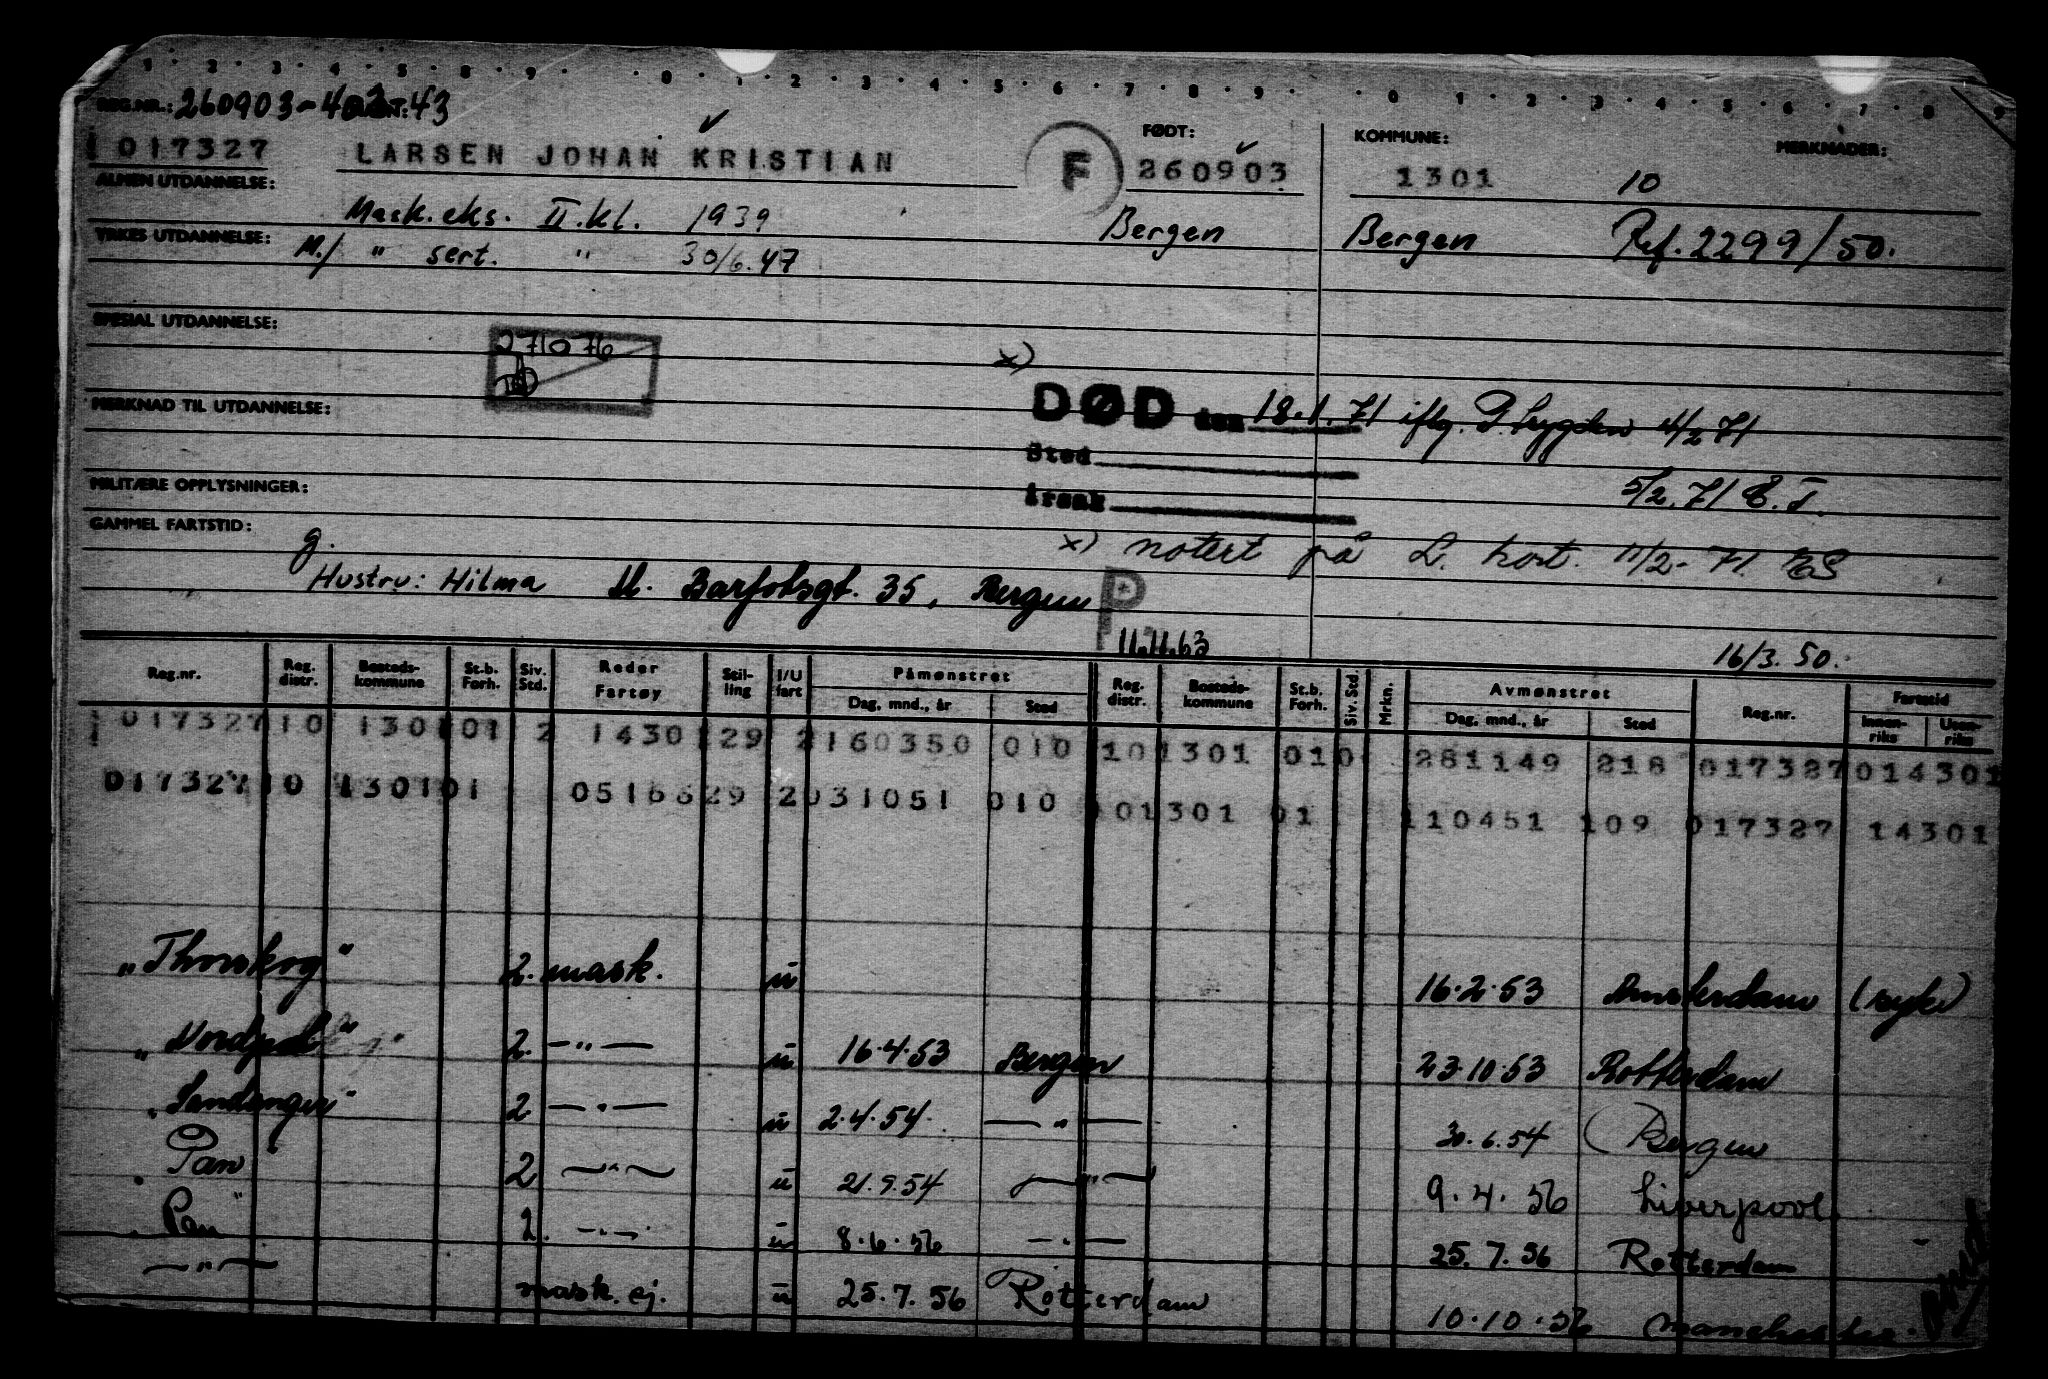 REG.NR.: 260903-40243
1017327 LARSEN JOHAN KRISTIAN F FØDT: 260903 KOMMUNE: 1301 MERKNADER: 10
ALMEN UTDANNELSE:
Mask.eks. II.kl. 1939 Bergen Bergen Ref. 2299/50.
YRKES UTDANNELSE: M./ " sert. " 30/6.47
SPESIAL UTDANNELSE:
271076
x)
DØD den 18.1.71 iflg. P.trygden 4/2 71
MERKNAD TIL UTDANNELSE:
Sted
5/2.71
MILITÆRE OPPLYSNINGER:
Årsak
GAMMEL FARTSTID: g.
x) notert på L. kort. 11/2-71.
Hustru: Hilma M. Barfotsgt. 35, Bergen P
11.11.63 16/3.50.
Reg.nr. Reg. distr. Bosteds-kommune St.b. Forh. Siv. Std. Reder Fartøy Stil-ling I/U fart Påmønstret Dag, mnd., år Sted Reg. distr. Bosteds-kommune St.b. Forh. Siv. Std. Mrkn. Avmønstret Dag, mnd., år Sted Reg.nr. Fartstid Innen-riks Uten-riks
1017327 10 1301 01 2 1430 29 2 160350 010 10 1301 01 0 281149 218 017327 014301
017327 10 1301 01 0516629 2 031051 010 101301 01 110451 109 017327 14301
"Thorskog" 2. mask. u 16.2.53 Amsterdam (syke)
2. -"- u 16.4.53 Bergen 23.10.53 Rotterdam
"Sandanger" 2 -"- u 2.4.54 -"- 30.6.54 Bergen
"Pan" 2 -"- u 21.9.54 -"- 9.4.56 Liverpool
"Pan" 2. -"- u 8.6.56 -"- 25.7.56 Rotterdam
-"- mask. ej. u 25.7.56 Rotterdam 10.10.56 Manchester.